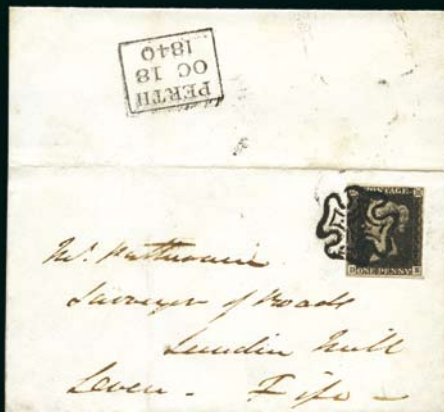 PERTH
OC 18
1840
POSTAGE
ONE PENNY
Mr.
Surveyor of Roads
Lundin Mill
Leven - Fife -